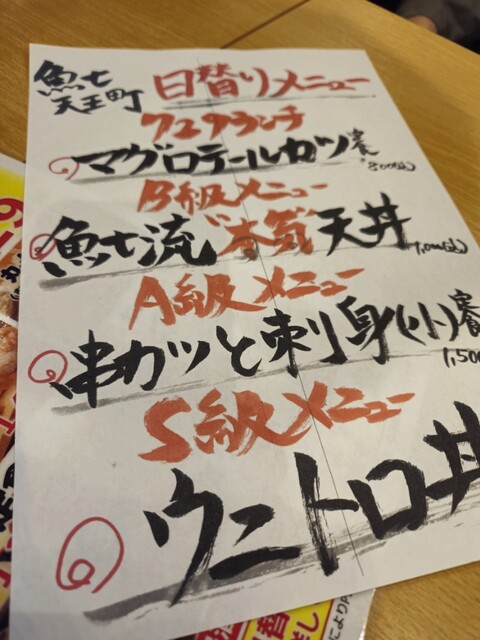 魚七
天王町
日替りメニュー
マグロテールカツ定食
B級メニュー
魚七流"本気"天丼
A級メニュー
串カツと刺身(小)定食
1,500
S級メニュー
ウニトロ丼